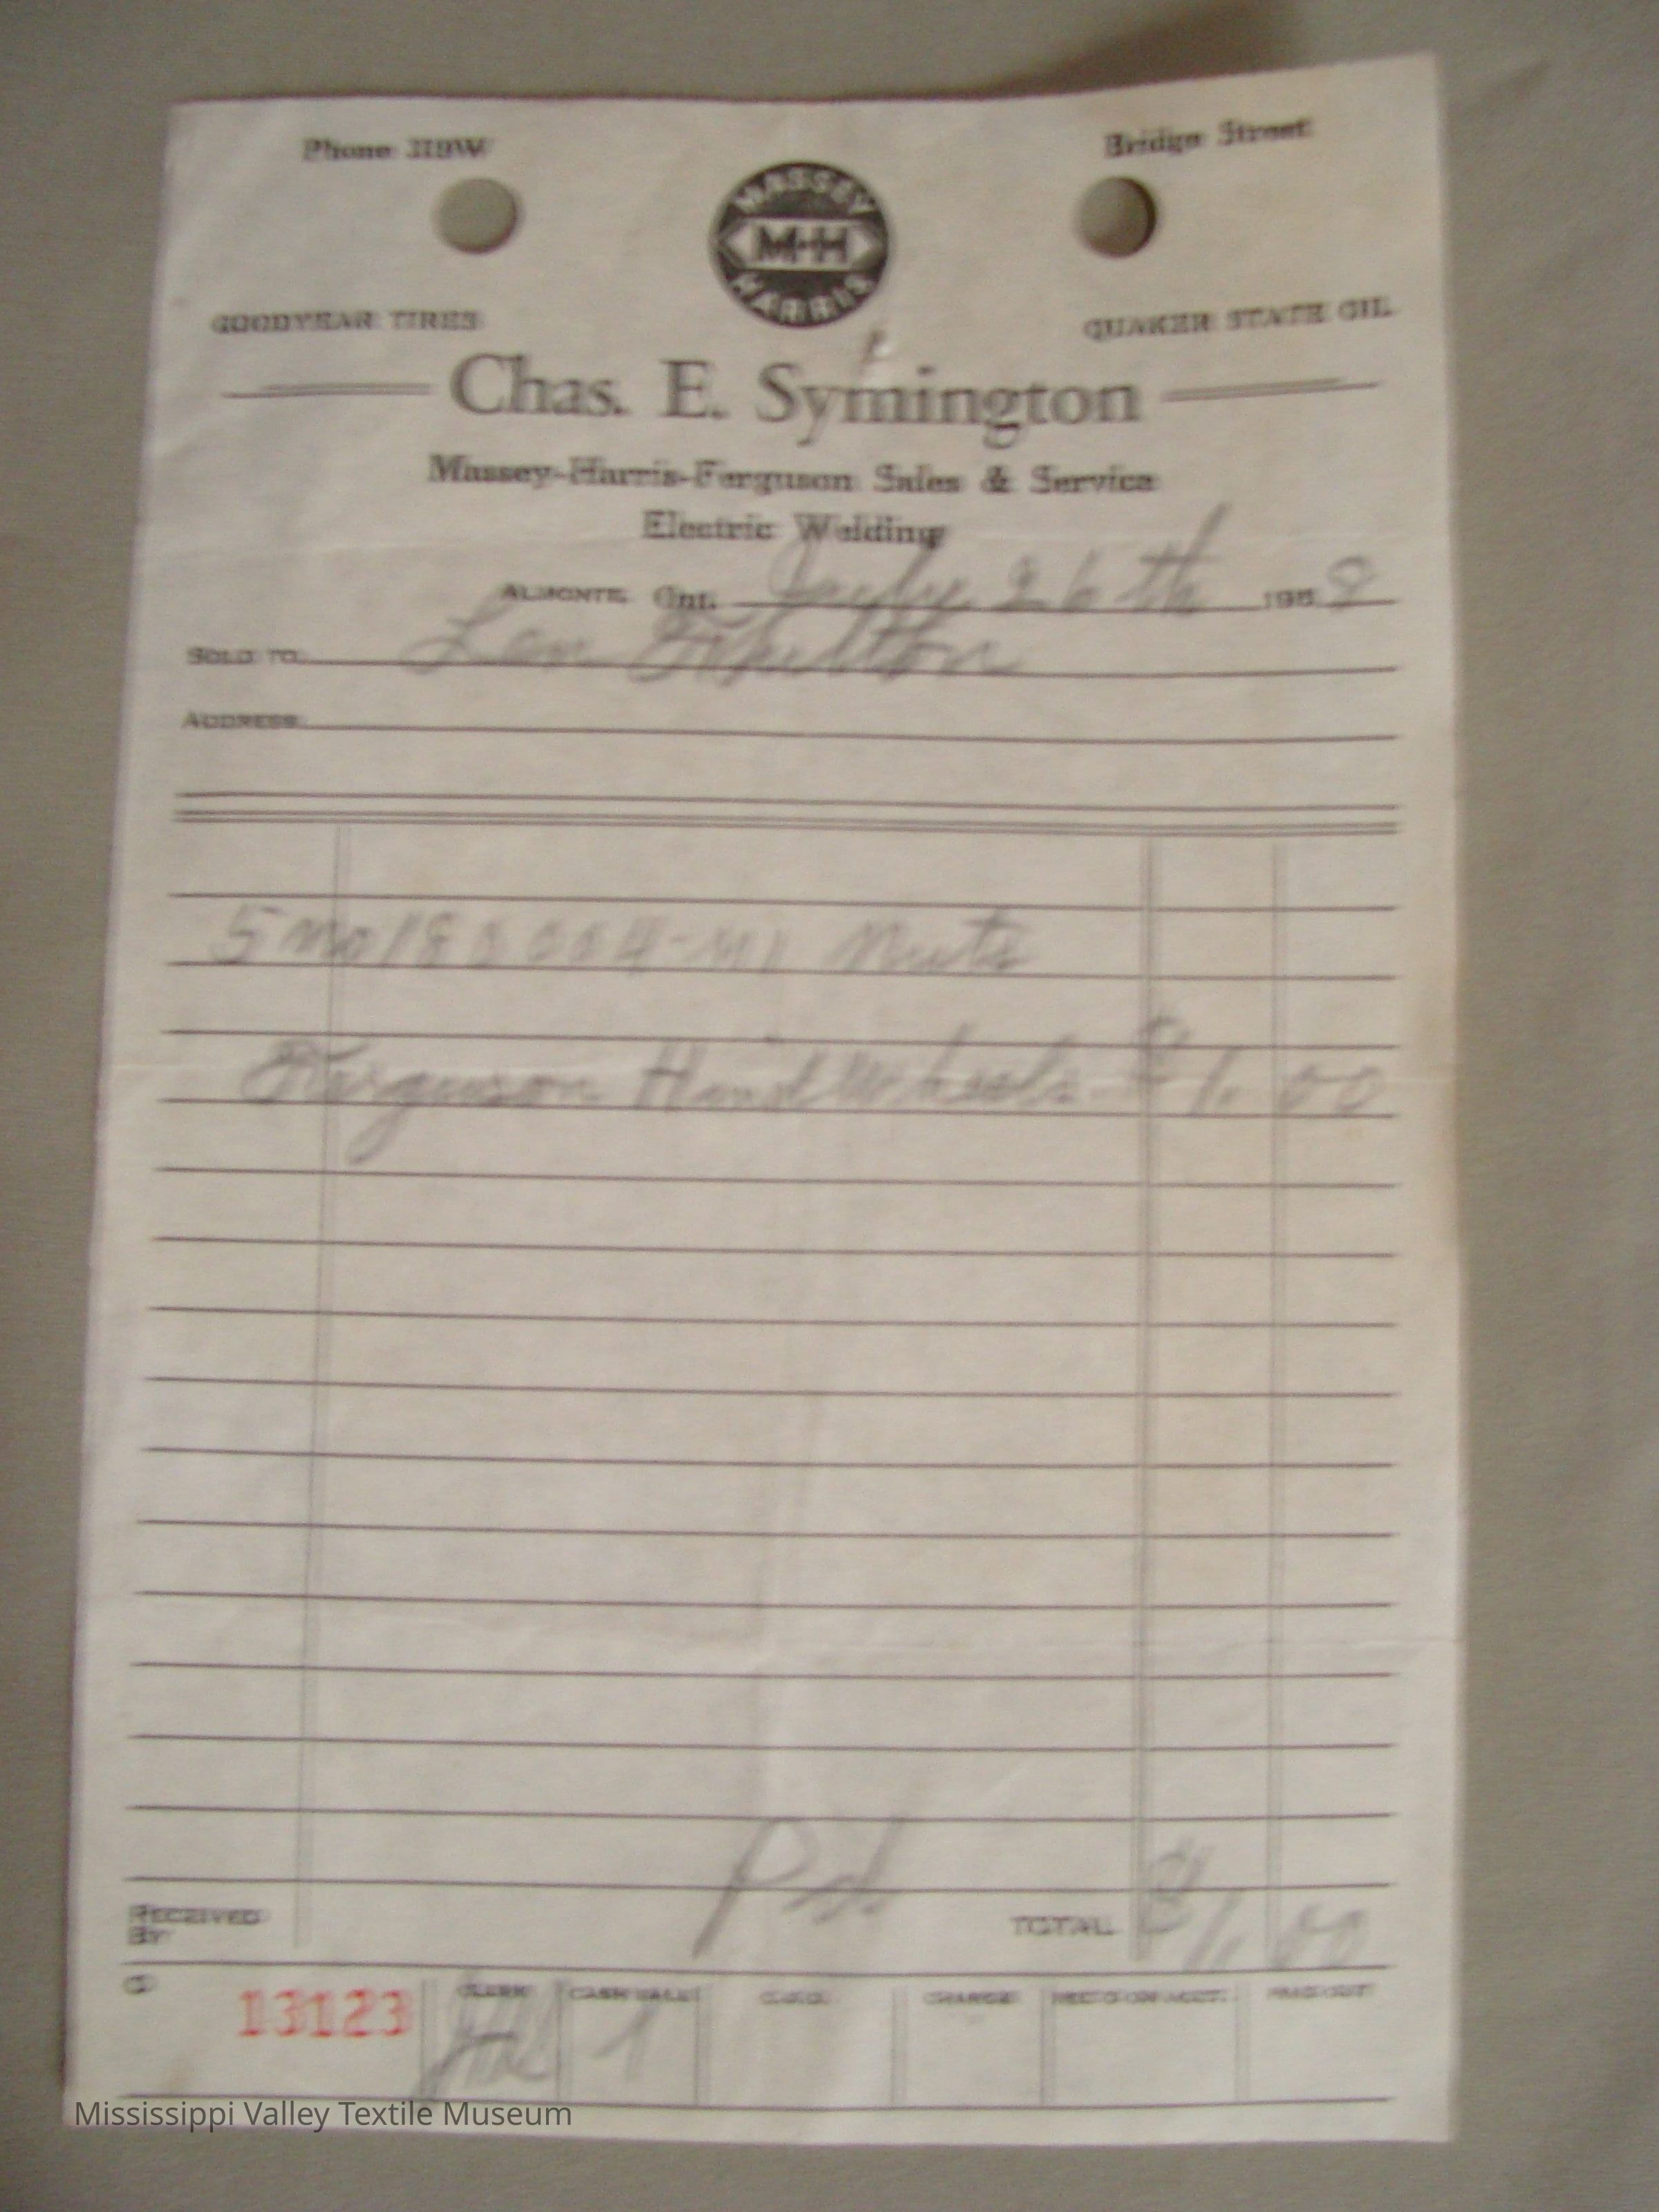 Phone 319W
Bridge Street
MASSEY
M-H
HARRIS
GOODYEAR TIRES
QUAKER STATE OIL
Chas. E. Symington
Massey-Harris-Ferguson Sales & Service
Electric Welding
ALMONTE, Ont. July 26th 1958
SOLD TO Len Fhulton
ADDRESS
5 no 180004-M1 Nuts
Ferguson Hind Wheels $1.00
Pd
RECEIVED BY
TOTAL $1.00
13123
CLERK
CASH SALE
C.O.D.
CHARGE
REC'D ON ACCT.
PAID OUT
Mississippi Valley Textile Museum